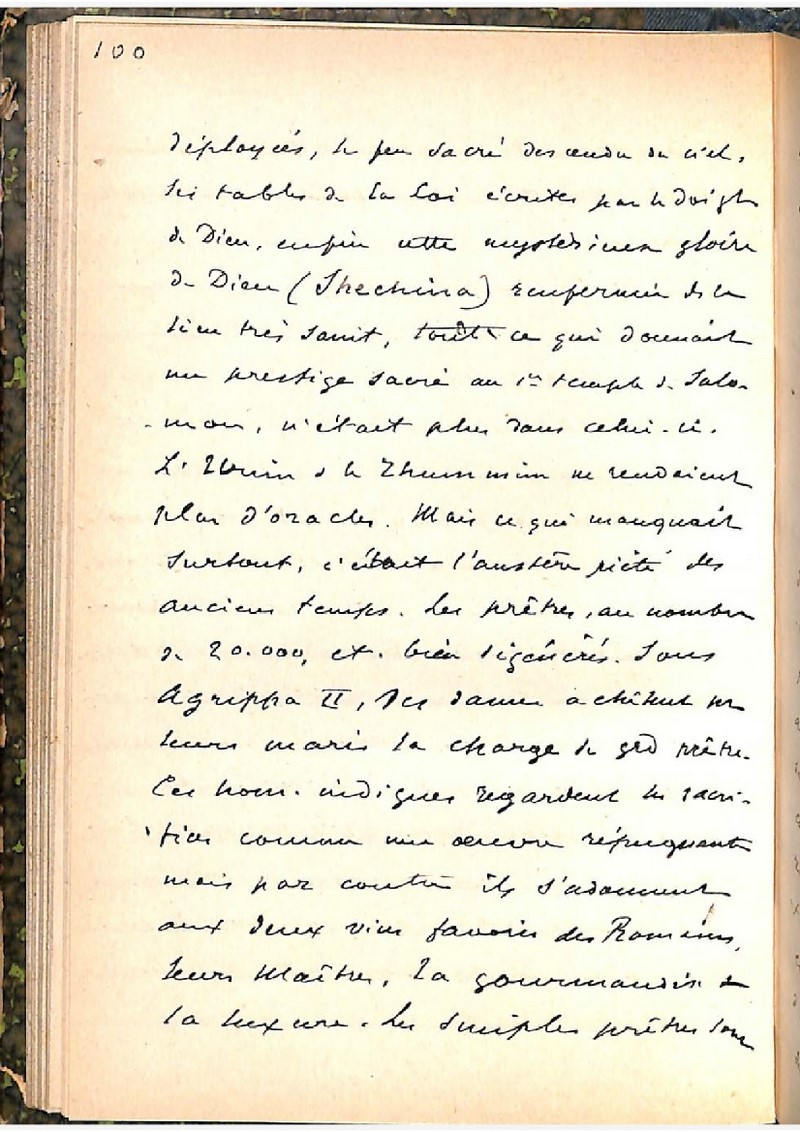 100
déployées, le feu sacré descendu du ciel,
les tables de la Loi écrites par le doigt
de Dieu, enfin cette mystérieuse gloire
de Dieu (Shechina) renfermée ds le
lieu très saint, tout ce qui donnait
un prestige sacré au 1er temple de Salo-
-mon, n'était plus dans celui-ci.
L'Urim & le Thummim ne rendaient
plus d'oracles. Mais ce qui manquait
surtout, c'était l'austère piété des
anciens temps. Les prêtres, au nombre
de 20.000, ét. bien dégénérés. Sous
Agrippa II, des dames achètent pr
leurs maris la charge de grd prêtre.
Ces hom. indignes regardent les sacri-
-fices comme une oeuvre répugnante
mais par contre ils s'adonnent
aux deux vices favoris des Romains,
leurs Maîtres, la gourmandise &
la luxure. Les simples prêtres sont